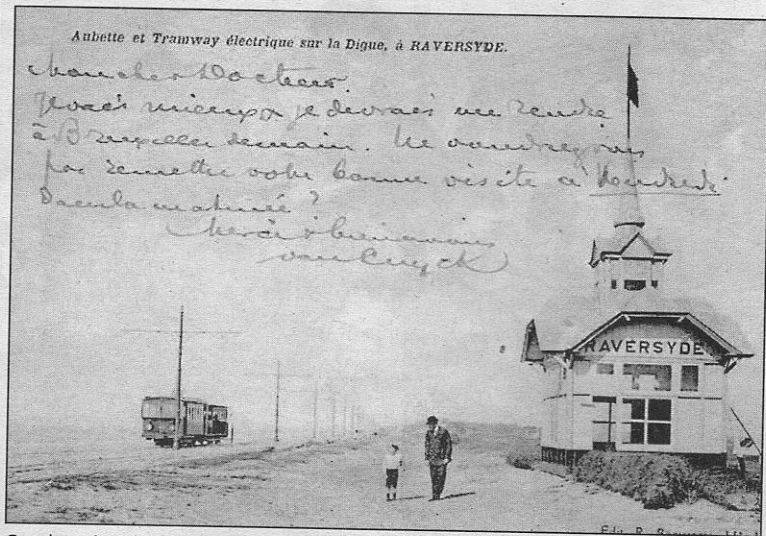 Aubette et Tramway électrique sur la Digue, à RAVERSYDE.
Mon cher Docteur.
Je vais mieux je devrais me rendre
à Bruxelles demain. Ne voudriez vous
pas remettre votre bonne visite à Vendredi
dans la matinée ?
Merci &
van Cuyck
RAVERSYDE
Edit. R.